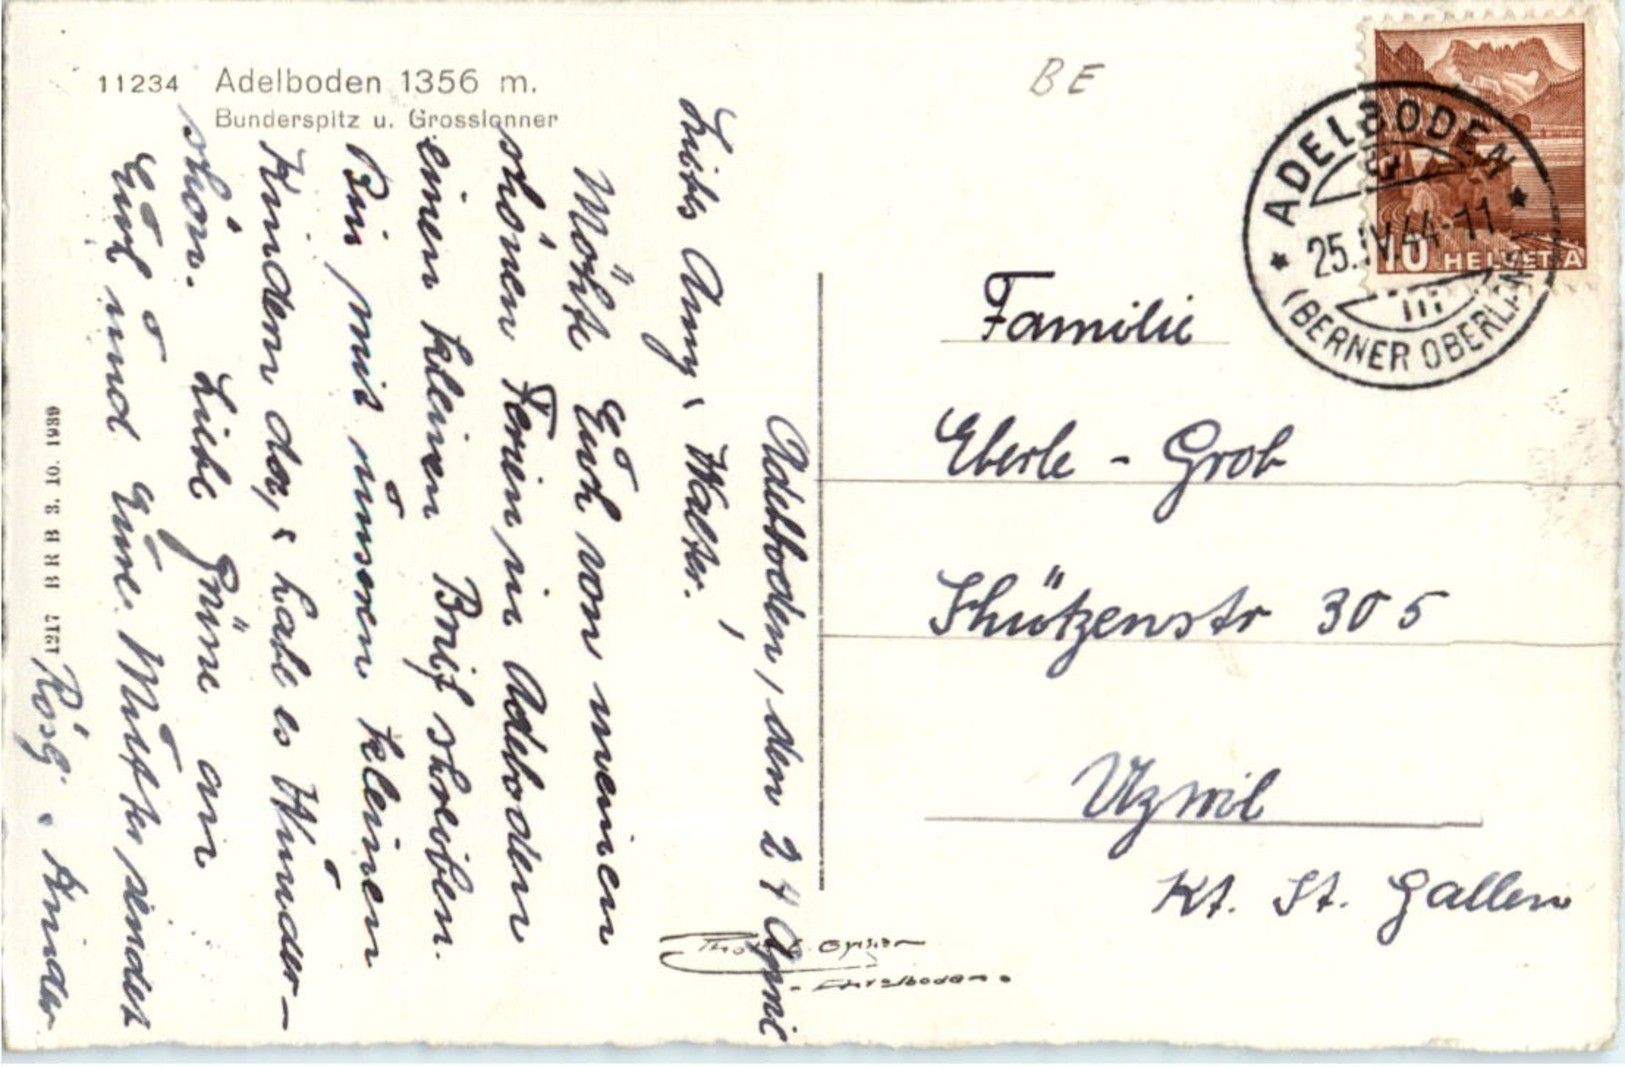 11234 Adelboden 1356 m.
Bunderspitz u. Grosslonner
BE
ADELBODEN
25.IV.44-11
(BERNER OBERLAND)
10 HELVETIA
Adelboden, den 24 April
Liebs Anny & Walter!
Möhte Euch von meinen
schönen Ferien in Adelboden
einen kleinen Brief schreiben.
Bin mit unseren kleinen
Kindern da, & habe es Wunder-
schön. Liebe Grüse an
Euch und Eure Mutter sendet
Rösly & Kinder
Familie
Eberle - Grob
Schützenstr 305
Uzwil
Kt. St. Gallen
Phot. E. Gyger
Adelboden
1217 BRB 3. 10. 1939